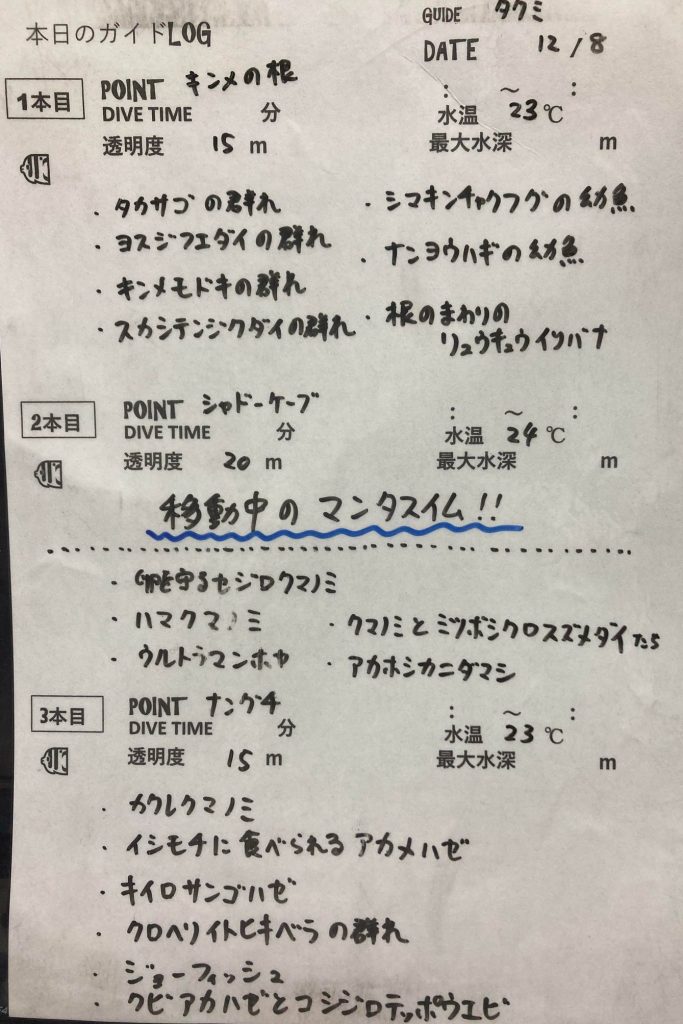 本日のガイドLOG
GUIDE タクミ
DATE 12/8
1本目 POINT キンメの根 : ～ :
DIVE TIME 分 水温 23℃
透明度 15 m 最大水深 m
・タカサゴの群れ ・シマキンチャクフグの幼魚
・ヨスジフエダイの群れ ・ナンヨウハギの幼魚
・キンメモドキの群れ ・根のまわりの
・スカシテンジクダイの群れ リュウキュウイソバナ
2本目 POINT シャドーケーブ : ～ :
DIVE TIME 分 水温 24℃
透明度 20 m 最大水深 m
移動中のマンタスイム!!
・卵を守るセジロクマノミ
・ハマクマノミ ・クマノミとミツボシクロスズメダイたち
・ウルトラマンホヤ ・アカホシカニダマシ
3本目 POINT ナングチ : ～ :
DIVE TIME 分 水温 23℃
透明度 15 m 最大水深 m
・カクレクマノミ
・イシモチに食べられるアカメハゼ
・キイロサンゴハゼ
・クロヘリイトヒキベラの群れ
・ジョーフィッシュ
・クビアカハゼとコシジロテッポウエビ